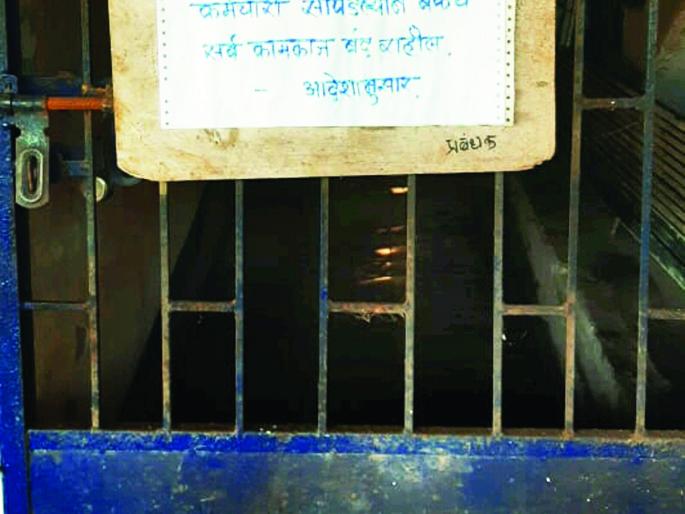 कर्मचारी सापडल्याने बँकेचे
सर्व कामकाज बंद राहील.
- आदेशानुसार
प्रबंधक